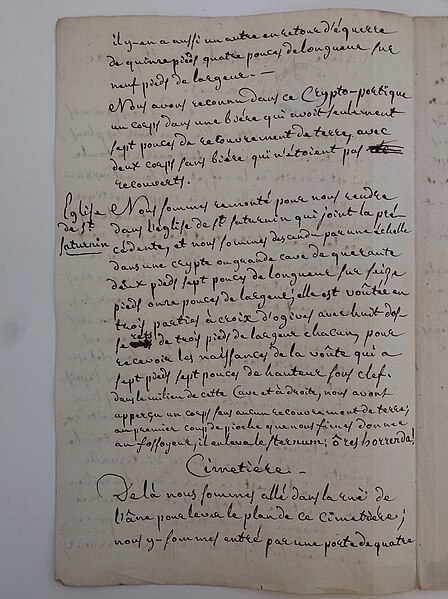 il y-en a aussi un autre en retour d'équerre
de quinze pieds quatre pouces de longueur sur
neuf pieds de largeur. —
Nous avons reconnu dans ce Crypto-portique
un corps dans une bière qui avoit seulement
sept pouces de recouvrement de terre, avec
deux corps sans bière qui n'étoient pas
recouverts.
Eglise
de St
Saturnin
Nous sommes remonté pour nous rendre
dans l'église de St Saturnin qui joint la pré
cédente, et nous sommes descendu par une échelle
dans une crypte ou grande cave de quarante
deux pieds sept pouces de longueur sur seize
pieds onze pouces de largeur; elle est voûtée en
trois parties à croix d'ogives avec huit dos
serets de trois pieds de largeur chacun, pour
recevoir les naissances de la voûte qui a
sept pieds sept pouces de hauteur sous clef.
dans le milieu de cette Cave et à droite, nous avons
apperçu un corps sans aucun recouvrement de terre;
au premier coup de pioche que nous fimes donner
au fossoyeur, il enleva le sternum; ô res horrenda!
Cimetière. -
De là nous sommes allé dans la rue de
l'âne pour lever le plan de ce Cimetière;
nous y-sommes entré par une porte de quatre